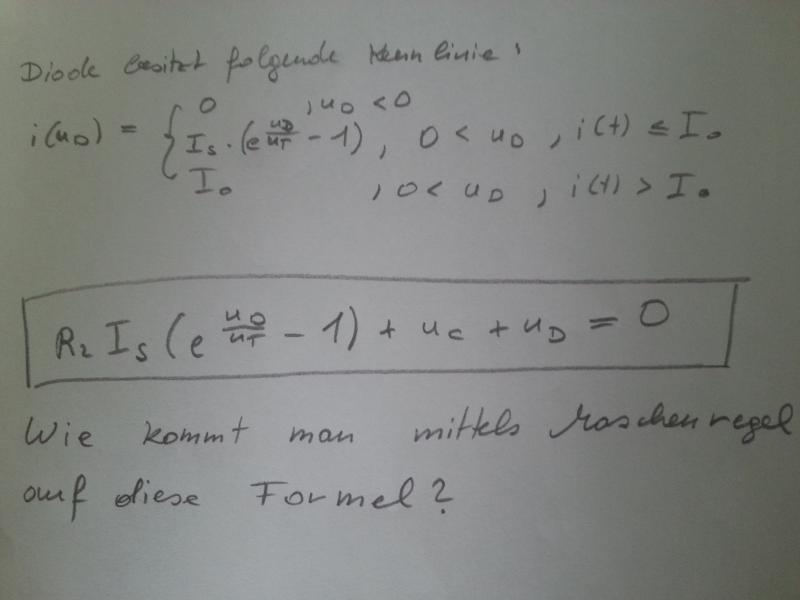 Diode besitzt folgende Kennlinie:
i(u_D) = { 0 , u_D < 0
I_s · (e^{u_D/u_T} - 1) , 0 < u_D , i(t) ≤ I_0
I_0 , 0 < u_D , i(t) > I_0
R_2 I_S (e^{u_D/u_T} - 1) + u_C + u_D = 0
Wie kommt man mittels Maschenregel
auf diese Formel?